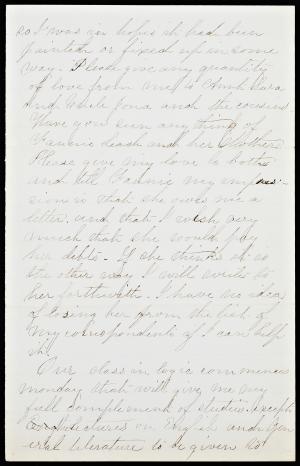 so I was in hopes it had been
painted or fixed up in some
way. Please give any quantity
of love from me to Aunt
And Uncle and the cousins.
Have you seen any thing of
Fannie and her Mother
Please give my love to both
and tell Fannie my impres-
sion is that she owes me a
letter, and that I wish very
much that she would pay
her debts. If she thinks it is
the other way I will write to
her forthwith. I have no idea
of losing her from the list of
my correspondents if I can help
it.
Our class in logic commences
monday that will give me my
full complement of studies except
lectures on English and Gen
eral literature to be given